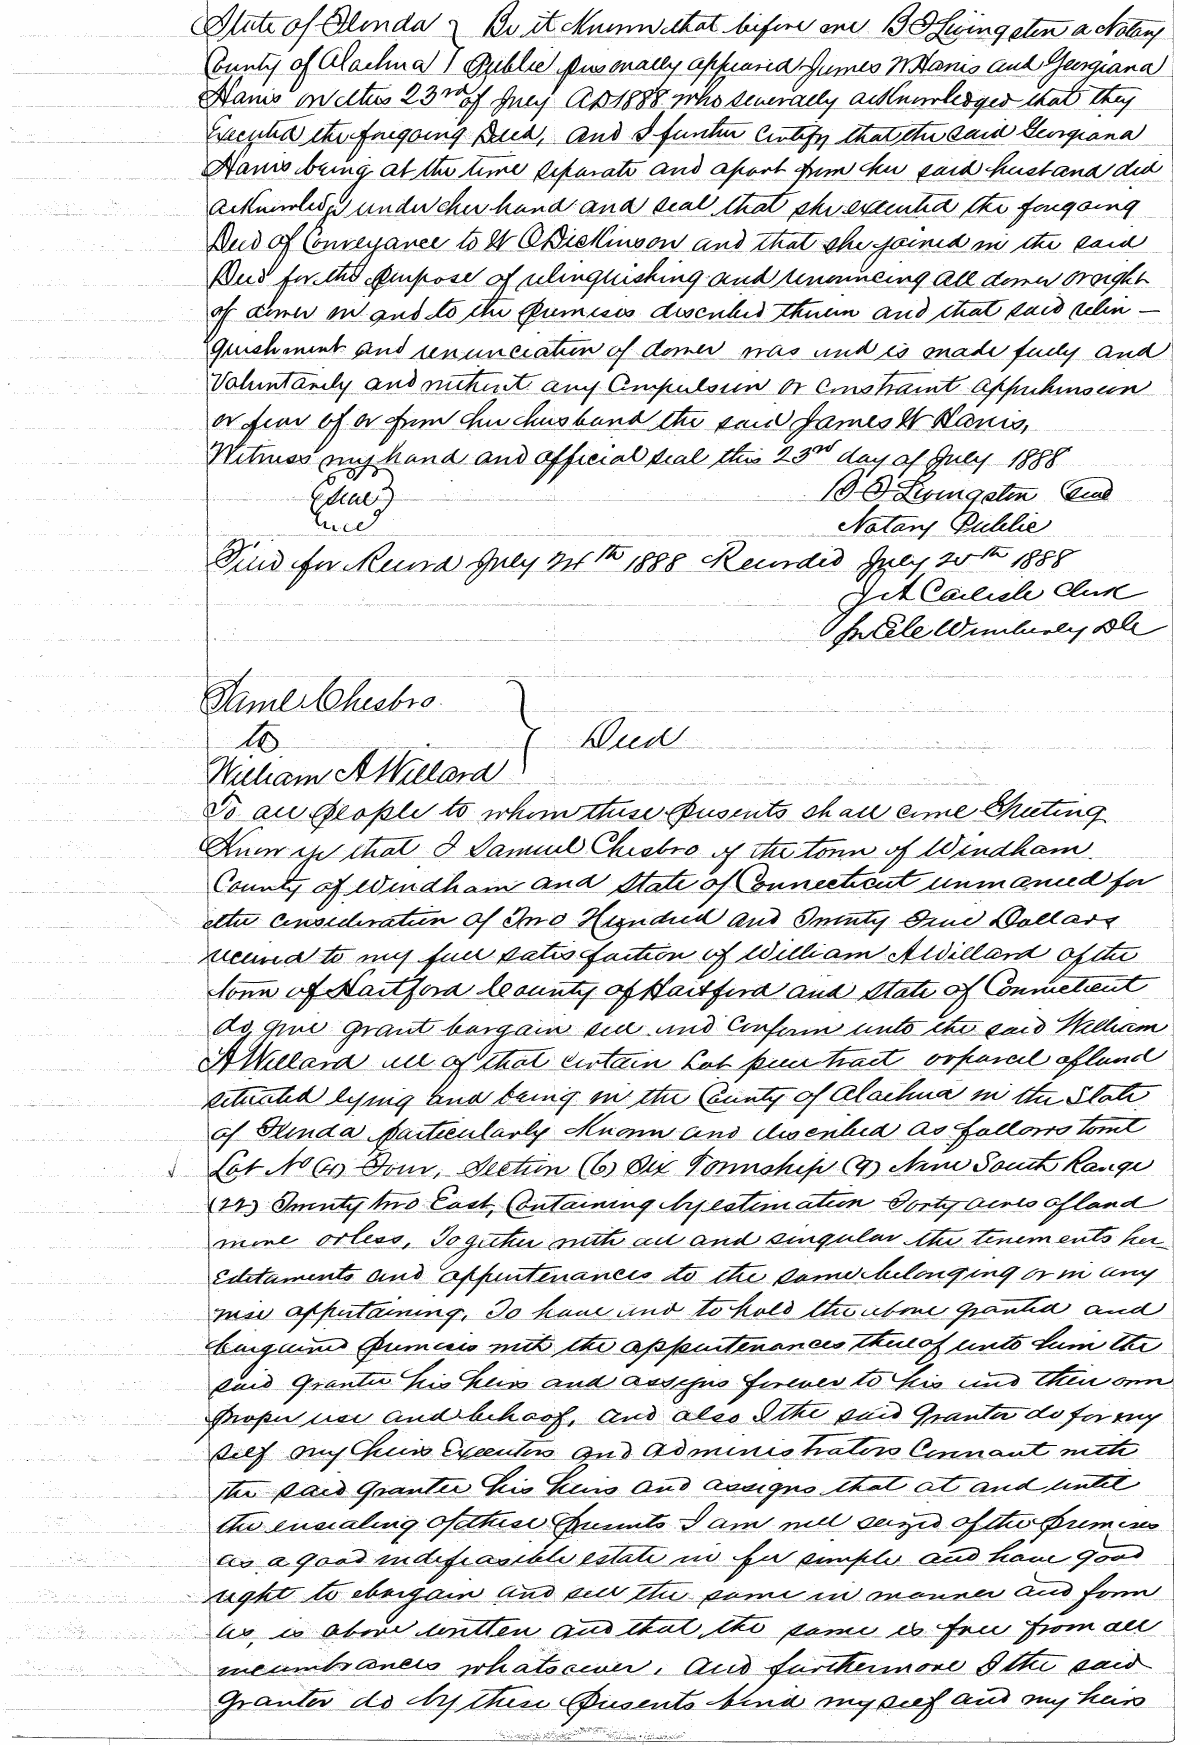 State of Florida } Be it Known that before me B F Livingston a Notary
County of Alachua } Public personally appeared James W Harris and Georgiana
Harris on this 23rd of July AD 1888 who severally acknowledged that they
Executed the foregoing Deed, and I further Certify that the said Georgiana
Harris being at the time separate and apart from her said husband did
acknowledge under her hand and seal that she executed the foregoing
Deed of Conveyance to W C Dickinson and that she joined in the said
Deed for the purpose of relinquishing and renouncing all dower or right
of dower in and to the premises described therein and that said relin-
quishment and renunciation of dower was and is made freely and
Voluntarily and without any Compulsion or constraint apprehension
or fear of or from her husband the said James W Harris,
Witness my hand and official seal this 23rd day of July 1888
B F Livingston Seal
Notary Public
Filed for Record July 24th 1888 Recorded July 25th 1888
Carlisle Clerk
Wimberly DC
Saml Chesbro
to } Deed
William A Willard
To all People to whom these presents shall come Greeting
Know ye that I Samuel Chesbro of the town of Windham
County of Windham and State of Connecticut unmarried for
the consideration of Two Hundred and Twenty Five Dollars
received to my full satisfaction of William A Willard of the
town of Hartford County of Hartford and State of Connecticut
do give grant bargain sell and Confirm unto the said William
A Willard all of that certain Lot piece tract or parcel of land
situated lying and being in the County of Alachua in the State
of Florida particularly Known and described as follows towit
Lot No (4) Four, Section (6) Six Township (9) Nine South Range
(22) Twenty two East, Containing by estimation Forty acres of land
more or less, Together with all and singular the tenements her
editaments and appurtenances to the same belonging or in any
wise appertaining, To have and to hold the above granted and
bargained premises with the appurtenances thereof unto him the
said Grantee his heirs and assigns forever to his and their own
proper use and behoof, and also I the said Grantor do for my
self my heirs Executors and administrators Covenant with
the said Grantee his heirs and assigns that at and until
the ensealing of these presents I am well seized of the premises
as a good indefeasible estate in fee simple and have good
right to bargain and sell the same in manner and form
as is above written and that the same is free from all
incumbrances whatsoever, And furthermore I the said
Grantor do by these presents bind myself and my heirs